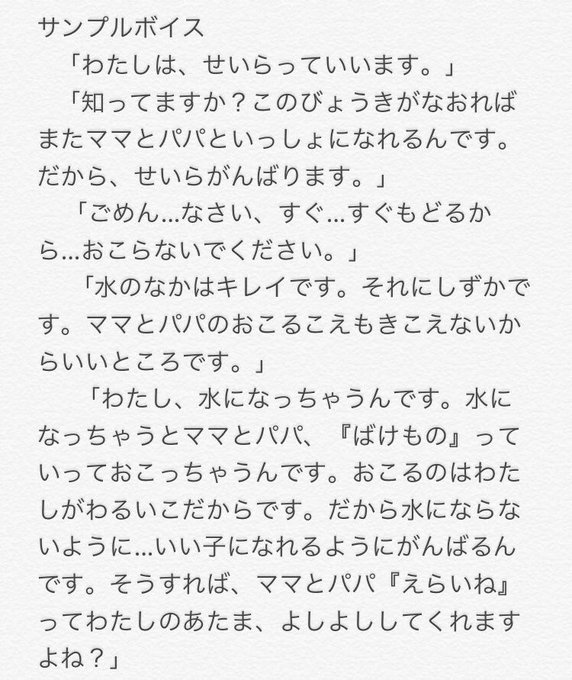 サンプルボイス
「わたしは、せいらっていいます。」
「知ってますか？このびょうきがなおれば
またママとパパといっしょになれるんです。
だから、せいらがんばります。」
「ごめん...なさい、すぐ...すぐもどるか
ら...おこらないでください。」
「水のなかはキレイです。それにしずかで
す。ママとパパのおこるこえもきこえないか
らいいところです。」
「わたし、水になっちゃうんです。水に
なっちゃうとママとパパ、『ばけもの』って
いっておこっちゃうんです。おこるのはわた
しがわるいこだからです。だから水にならな
いように...いい子になれるようにがんばるん
です。そうすれば、ママとパパ『えらいね』
ってわたしのあたま、よしよししてくれます
よね？」